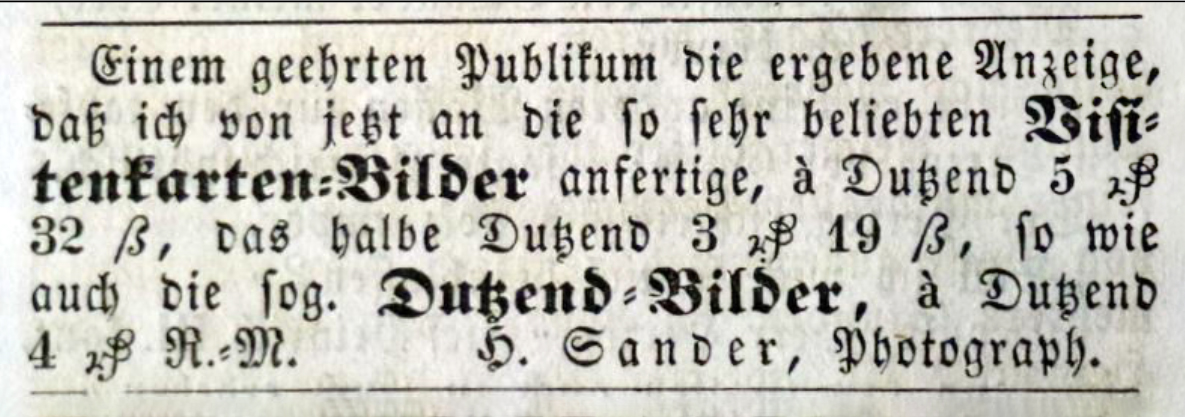 Einem geehrten Publikum die ergebene Anzeige,
daß ich von jetzt an die so sehr beliebten Visi-
tenkarten-Bilder anfertige, à Dutzend 5 ₰
32 ß, das halbe Dutzend 3 ₰ 19 ß, so wie
auch die sog. Dutzend-Bilder, à Dutzend
4 ₰ R.-M. H. Sander, Photograph.